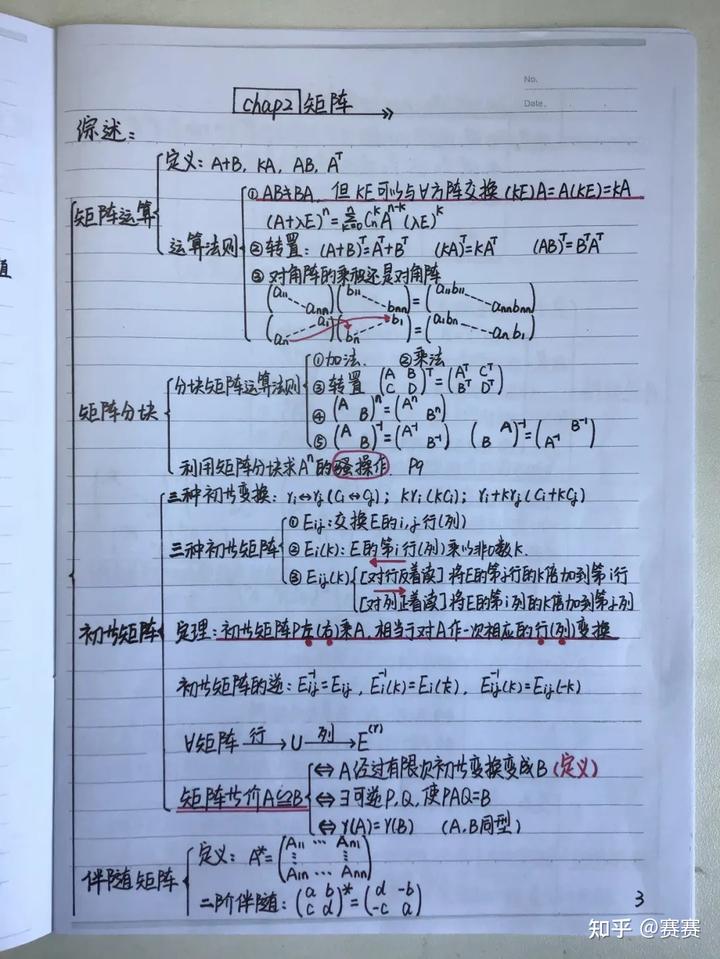 No.
Date.
chap2 矩阵
综述：
矩阵运算
定义：A+B, KA, AB, Aᵀ
运算法则
① AB≠BA, 但KE可以与∀方阵交换 (KE)A=A(KE)=KA
(A+λE)ⁿ=∑ₖ₌₀ⁿ CₙᵏAⁿ⁻ᵏ(λE)ᵏ
② 转置：(A+B)ᵀ=Aᵀ+Bᵀ (KA)ᵀ=KAᵀ (AB)ᵀ=BᵀAᵀ
③ 对角阵的乘积还是对角阵
(a₁₁ ⋱ aₙₙ)(b₁₁ ⋱ bₙₙ)=(a₁₁b₁₁ ⋱ aₙₙbₙₙ)
(aₙ ⋰ a₁)(bₙ ⋰ b₁)=(a₁bₙ ⋱ aₙb₁)
矩阵分块
分块矩阵运算法则
①加法. ②乘法
③ 转置 (A B; C D)ᵀ=(Aᵀ Cᵀ; Bᵀ Dᵀ)
④ (A  ;  B)ⁿ=(Aⁿ  ;  Bⁿ)
⑤ (A  ;  B)⁻¹=(A⁻¹  ;  B⁻¹) (  A; B  )⁻¹=(  B⁻¹; A⁻¹  )
利用矩阵分块求Aⁿ的骚操作. P9
初等矩阵
三种初等变换：rᵢ↔rⱼ(Cᵢ↔Cⱼ); Krᵢ(KCᵢ); rᵢ+Krⱼ(Cᵢ+KCⱼ)
三种初等矩阵
① Eij：交换E的i,j行(列)
② Ei(k)：E的第i行(列)乘以非0数k.
③ Eij(k)
[对行反着读]将E的第j行的k倍加到第i行
[对列正着读]将E的第i列的k倍加到第j列
定理：初等矩阵P左(右)乘A, 相当于对A作一次相应的行(列)变换
初等矩阵的逆：Eij⁻¹=Eij, Ei⁻¹(k)=Ei(1/k), Eij⁻¹(k)=Eij(-k)
∀矩阵 —行→ U —列→ E⁽ʳ⁾
矩阵等价A≅B
⇔ A经过有限次初等变换变成B (定义)
⇔ ∃可逆P,Q, 使PAQ=B
⇔ r(A)=r(B) (A,B同型)
伴随矩阵
定义：A*=(A₁₁ ⋯ Aₙ₁; ⋮ ⋮; A₁ₙ ⋯ Aₙₙ)
二阶伴随：(a b; c d)*=(d -b; -c a)
3
知乎 @赛赛